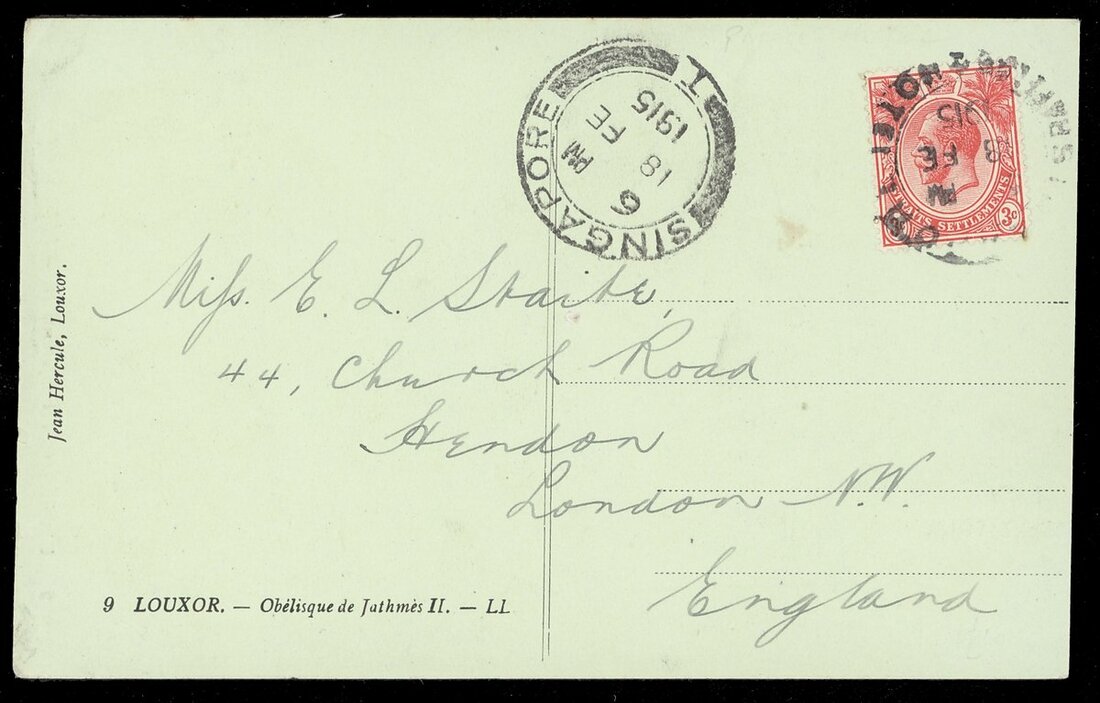 SINGAPORE 1
6 PM
18 FE
1915
PM
FE
STRAITS SETTLEMENTS
3c
Miss. E. L. Starte,
44, Church Road
Hendon
London N.W.
England
Jean Hercule, Louxor.
9 LOUXOR. — Obélisque de Jathmès II. — LL